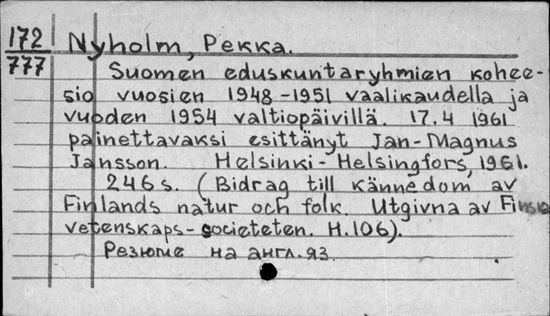 172
777
Nyholm, Pekka.
Suomen eduskuntaryhmien kohee-
sio vuosien 1948-1951 vaalikaudella ja
vuoden 1954 valtiopäivillä. 17.4 1961
painettavaksi esittänyt Jan-Magnus
Jansson. Helsinki-Helsingfors, 1961.
246 s. (Bidrag till kännedom av
Finlands natur och folk. Utgivna av Finska
vetenskaps-societeten. H.106).
Резюме на англ. яз.